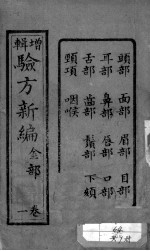 頭部 面部 眉部 目部
耳部 鼻部 唇部 口部
舌部 齒部 鬚部 下頦
頸項 咽喉
增輯
驗方新編
全部
卷一